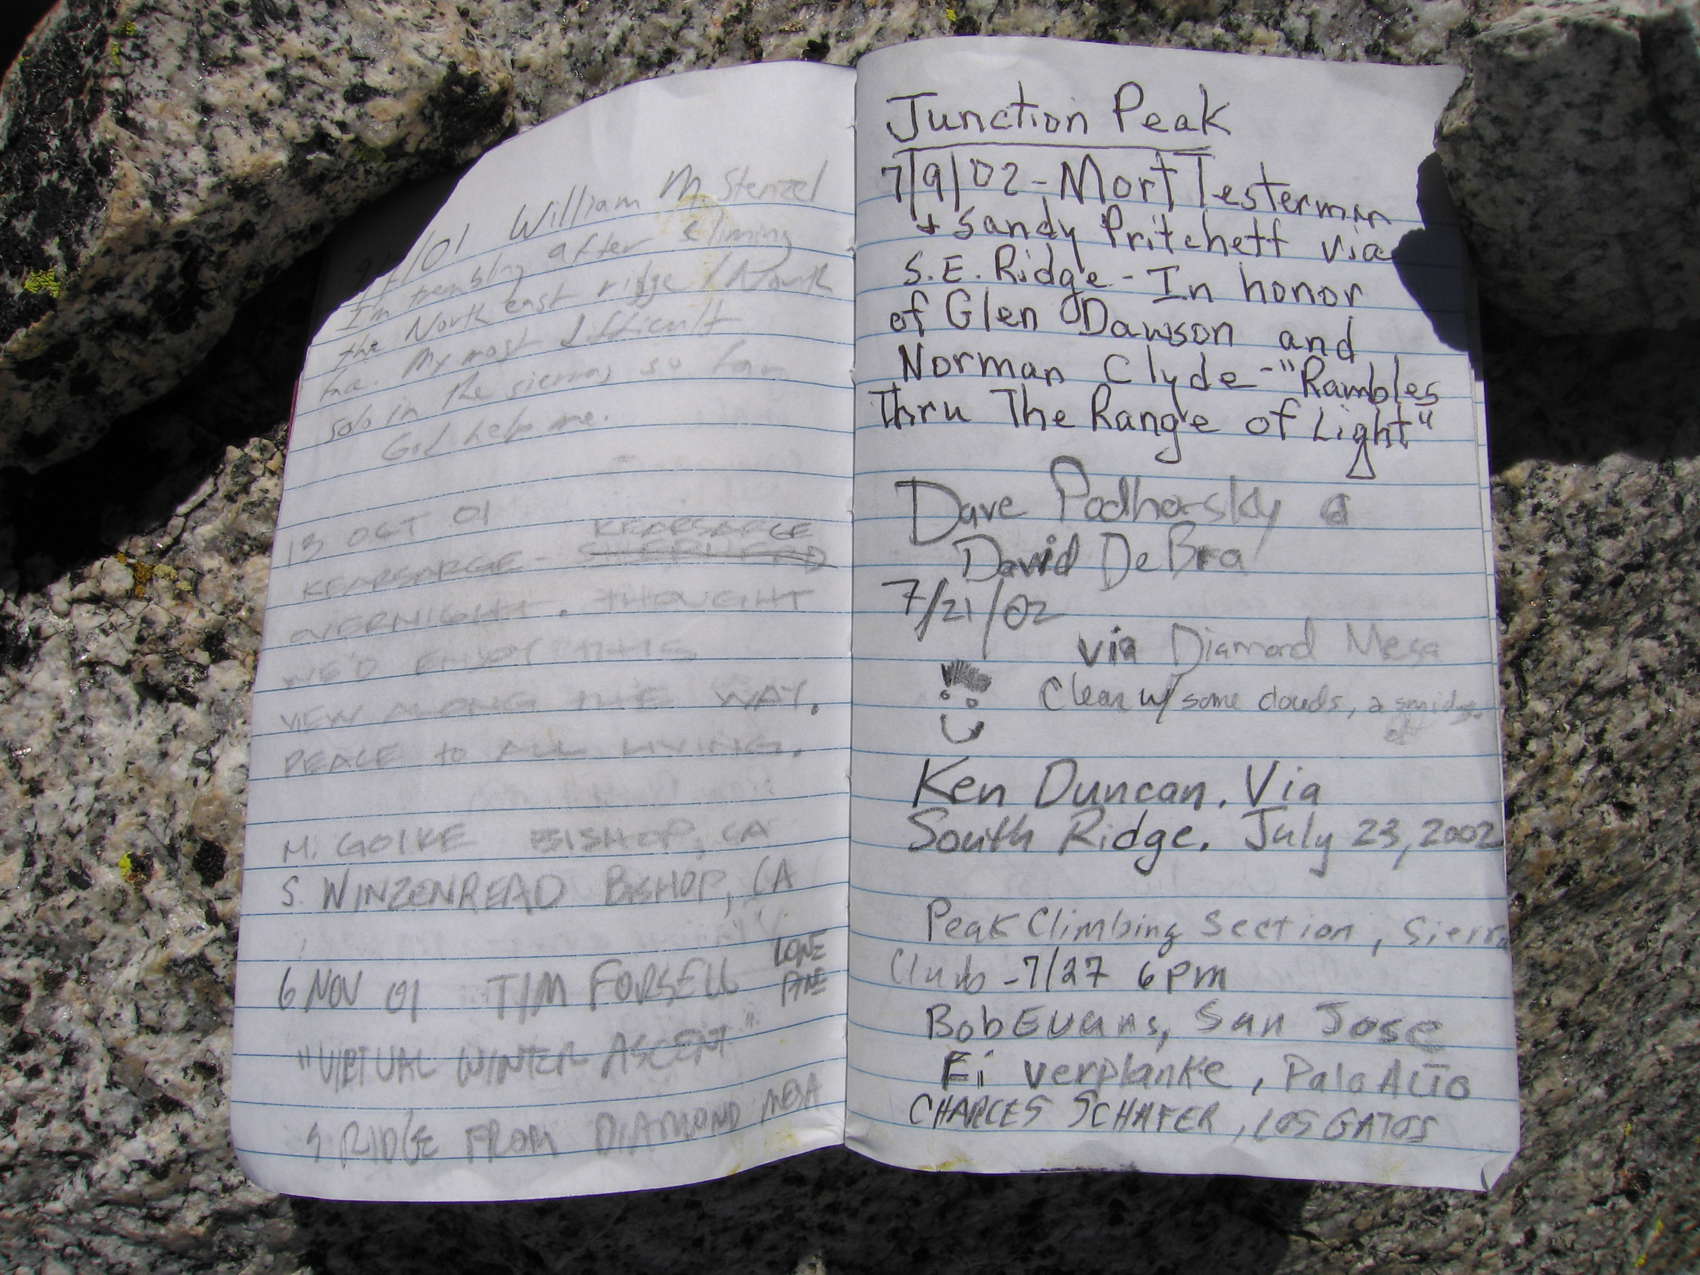 /01 William M Stenzel
I'm trembling after climing
the North east ridge / North
My most difficult
solo in the sierras so far
God help me.
13 OCT 01
KEARSARGE
KEARSARGE - SHEPHERD
OVERNIGHT. THOUGHT
WE'D ENJOY THIS
VIEW ALONG THE WAY.
PEACE to ALL LIVING.
M. GOIKE BISHOP, CA
S. WINZENREAD BISHOP, CA
6 NOV 01 TIM FORSELL LONE PINE
"VIRTUAL WINTER ASCENT"
S RIDGE FROM DIAMOND MESA
Junction Peak
7/9/02 - Mort Testerman
+ Sandy Pritchett via
S.E. Ridge - In honor
of Glen Dawson and
Norman Clyde - "Rambles
Thru The Range of Light"
Dave Podhorsky &
David DeBra
7/21/02
via Diamond Mesa
Clear w/ some clouds, a smidge
of
Ken Duncan. Via
South Ridge. July 23, 2002
Peak Climbing Section, Sierra
Club - 7/27 6 pm
Bob Evans, San Jose
Ei verplanke, Palo Alto
CHARLES SCHAFER, LOS GATOS